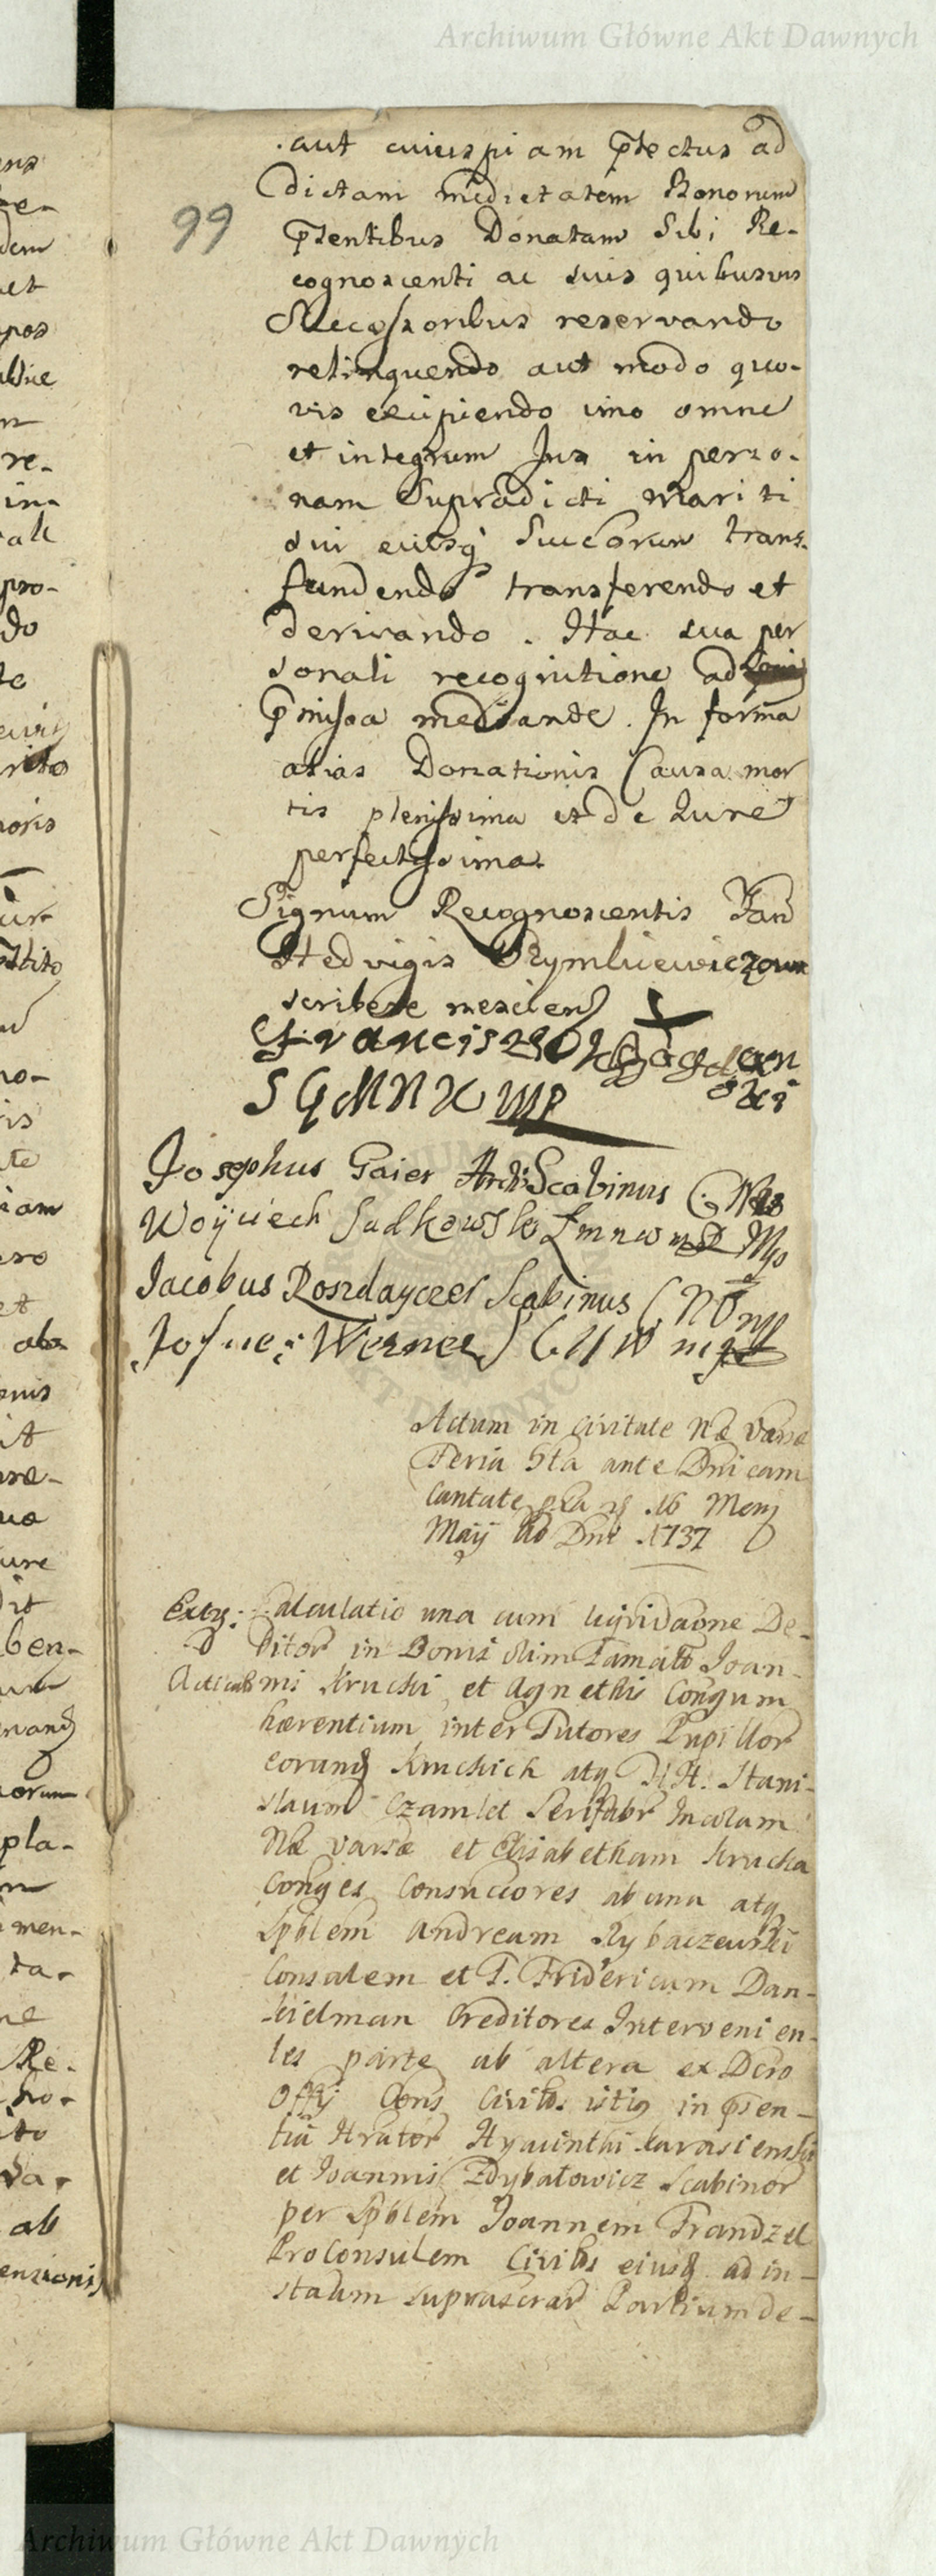 Archiwum Główne Akt Dawnych
99
aut cuiuspiam p̄tectus ad
dictam medietatem Bonorum
p̄sentibus Donatam Sibi Re-
cognoscenti ac suis quibusvis
Successoribus reservando
relinquendo aut modo quo-
vis excipiendo imo omne
et integrum Jus in perso-
nam Supradicti Mariti
sui eiusq̢ Succorum trans-
fundendo transferendo et
derivando . Hac sua per
sonali recognitione ad
p̄missa mediante . In forma
alias Donationis Causa mor
tis plenissima et de Jure
perfectissima.
Signum Recognoscentis Fam̄
Hedvigis Szymkiewiczowa
scribere nescien̄ X
Franciszek
S G M N W mp
Josephus Gaier ArchiScabinus
Woyciech Sadkowski
Jacobus Roszdayczer Scabinus C N V mp
Josue: Werner S C N W mp
Actum in Civitate Næ Varsæ
Feria 5ta ante Dn̄icam
Cantate 16 Mens̄
Maij Ao Dn̄i 1737
Extr: Calculatio una cum liqvidaõne De-
D bitor̄ in Bonis olim Famat̄o Joan-
nis Krucki et Agnethis Conḡum
hærentium inter Tutores Pupillor̄
eorund̄ Kruckich atq̢ Hon̄. Stani-
slaum Czamlet Serifabr̄ Incolam
Næ Varsæ et Elisabetham Krucka
Conḡes Consuccores ab una atq̢
Spblem Andream Rybaczewski
Consulem et F. Fridericum Dan-
kielman Creditores Intervenien-
tes parte ab altera ex Dcro
Offij Cons Civit̄is istiq̢ in p̄sen-
tia Hrator̄ Hyacinthi
et Joannis Zdybałowicz Scabinor̄
per Spblem Joannem Frandzel
ProConsulem Civit̄is eiusd̄ ad in-
staum suprascrar̄ Partium de-
Archiwum Główne Akt Dawnych